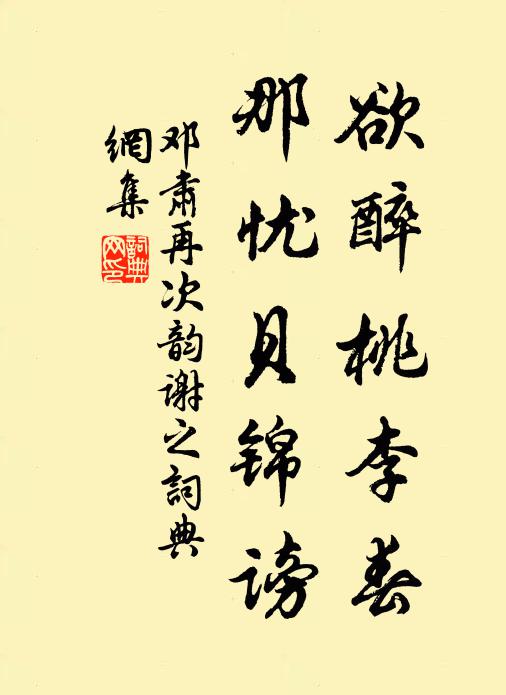 欲醉桃李春
那忧贝锦谤
邓肃再次韵谢之词典
網集
詞典网印